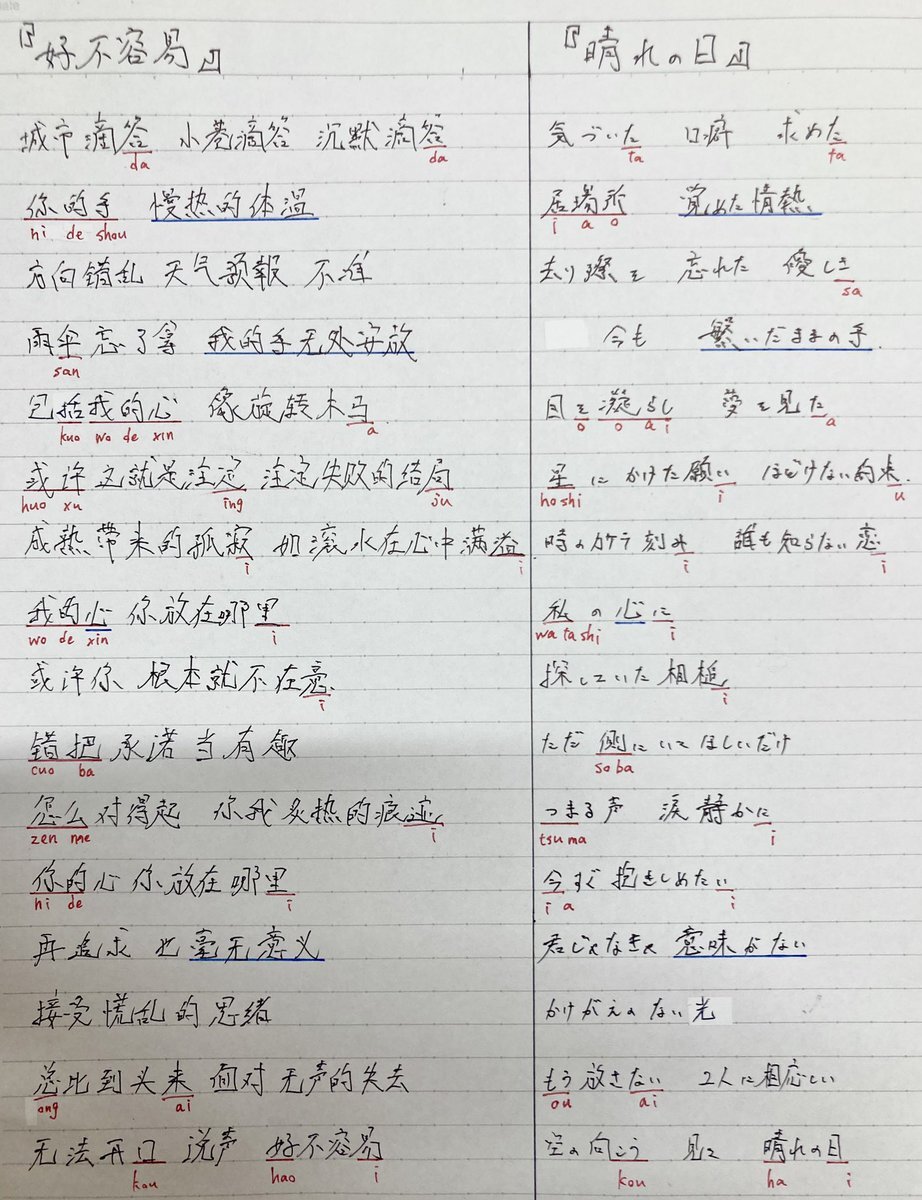 『好不容易』
城市滴答 小巷滴答 沉默滴答
da da
你的手 慢热的体温
ni de shou
方向错乱 天气预報 不准
雨伞忘了拿 我的手无处安放
san
包括我的心 像旋转木马
kuo wo de xin a
或许这就是注定 注定失败的结局
huo xu ing ju
成熟带来的孤寂 如滚水在心中满溢
i i
我的心 你放在哪里
wo de xin i
或许你 根本就不在意
i
错把承诺当有趣
cuo ba
怎么对得起 你我炙热的痕迹
zen me i
你的心 你放在哪里
ni de i
再追求 也毫无意义
接受慌乱的思绪
总比到头来 面对无声的失去
ong ai
无法开口 说声 好不容易
kou hao i
『晴れの日』
気づいた 口癖 求めた
ta ta
居場所 覚めた情熱
i a o
去り際に 忘れた 優しさ
sa
今も 繋いだままの手
目を凝らし 夢を見た
o o a i a
星にかけた願い ほどけない約束
hoshi i u
時のカケラ刻み 誰も知らない恋
i i
私の心に
watashi i
探していた相槌
i
ただ側にいてほしいだけ
soba
つまる声 涙静かに
tsuma i
今すぐ抱きしめたい
i a i
君じゃなきゃ意味がない
かけがえのない光
もう放さない 2人に相応しい
ou ai
空の向こう 見に 晴れの日
kou ha i